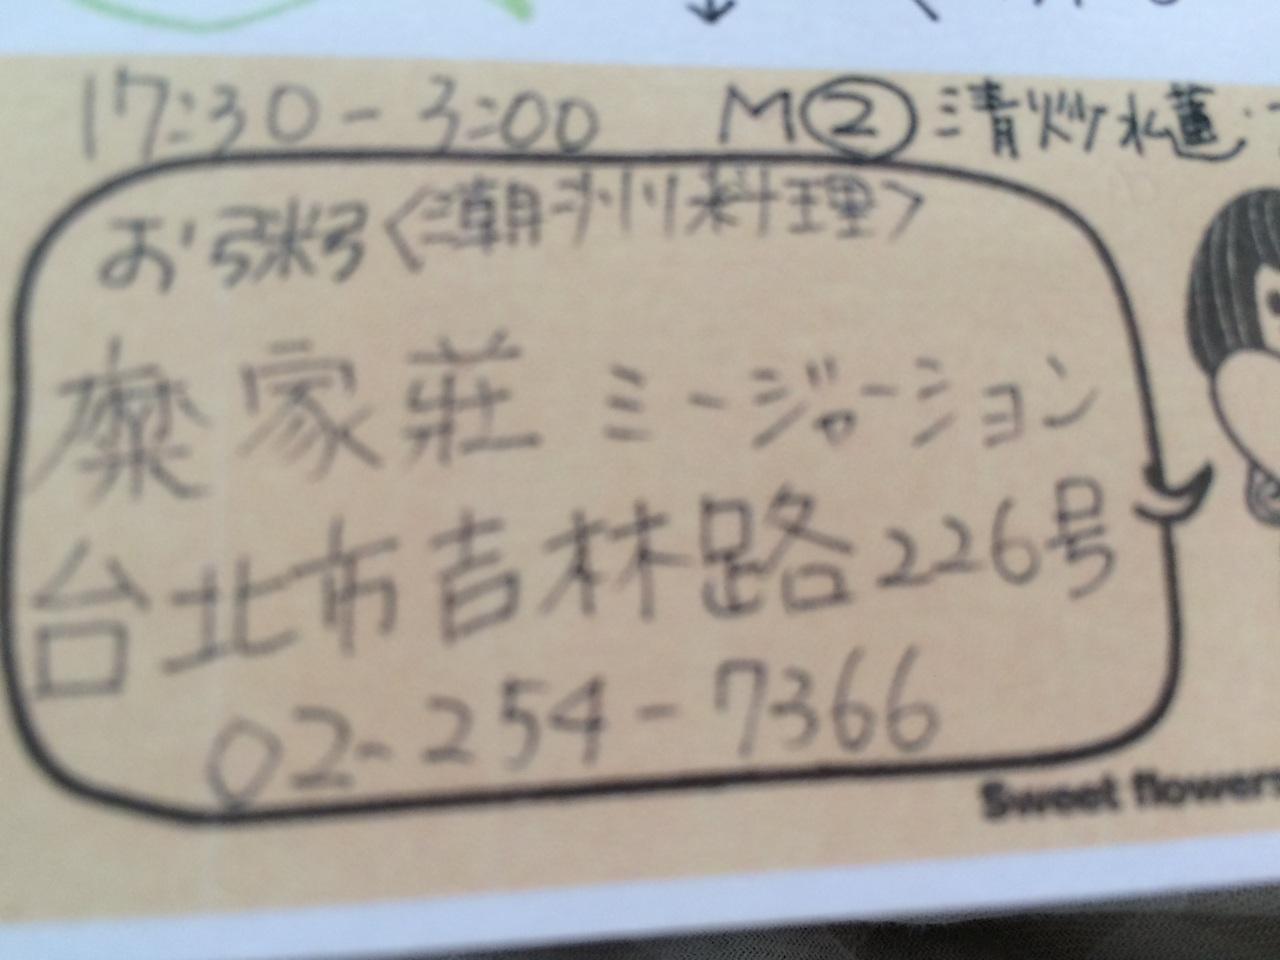 17:30-3:00 M② 清炒水蓮
お粥〈潮州料理〉
糜家荘 ミージァーション
台北市吉林路226号
02-254-7366
Sweet flowers